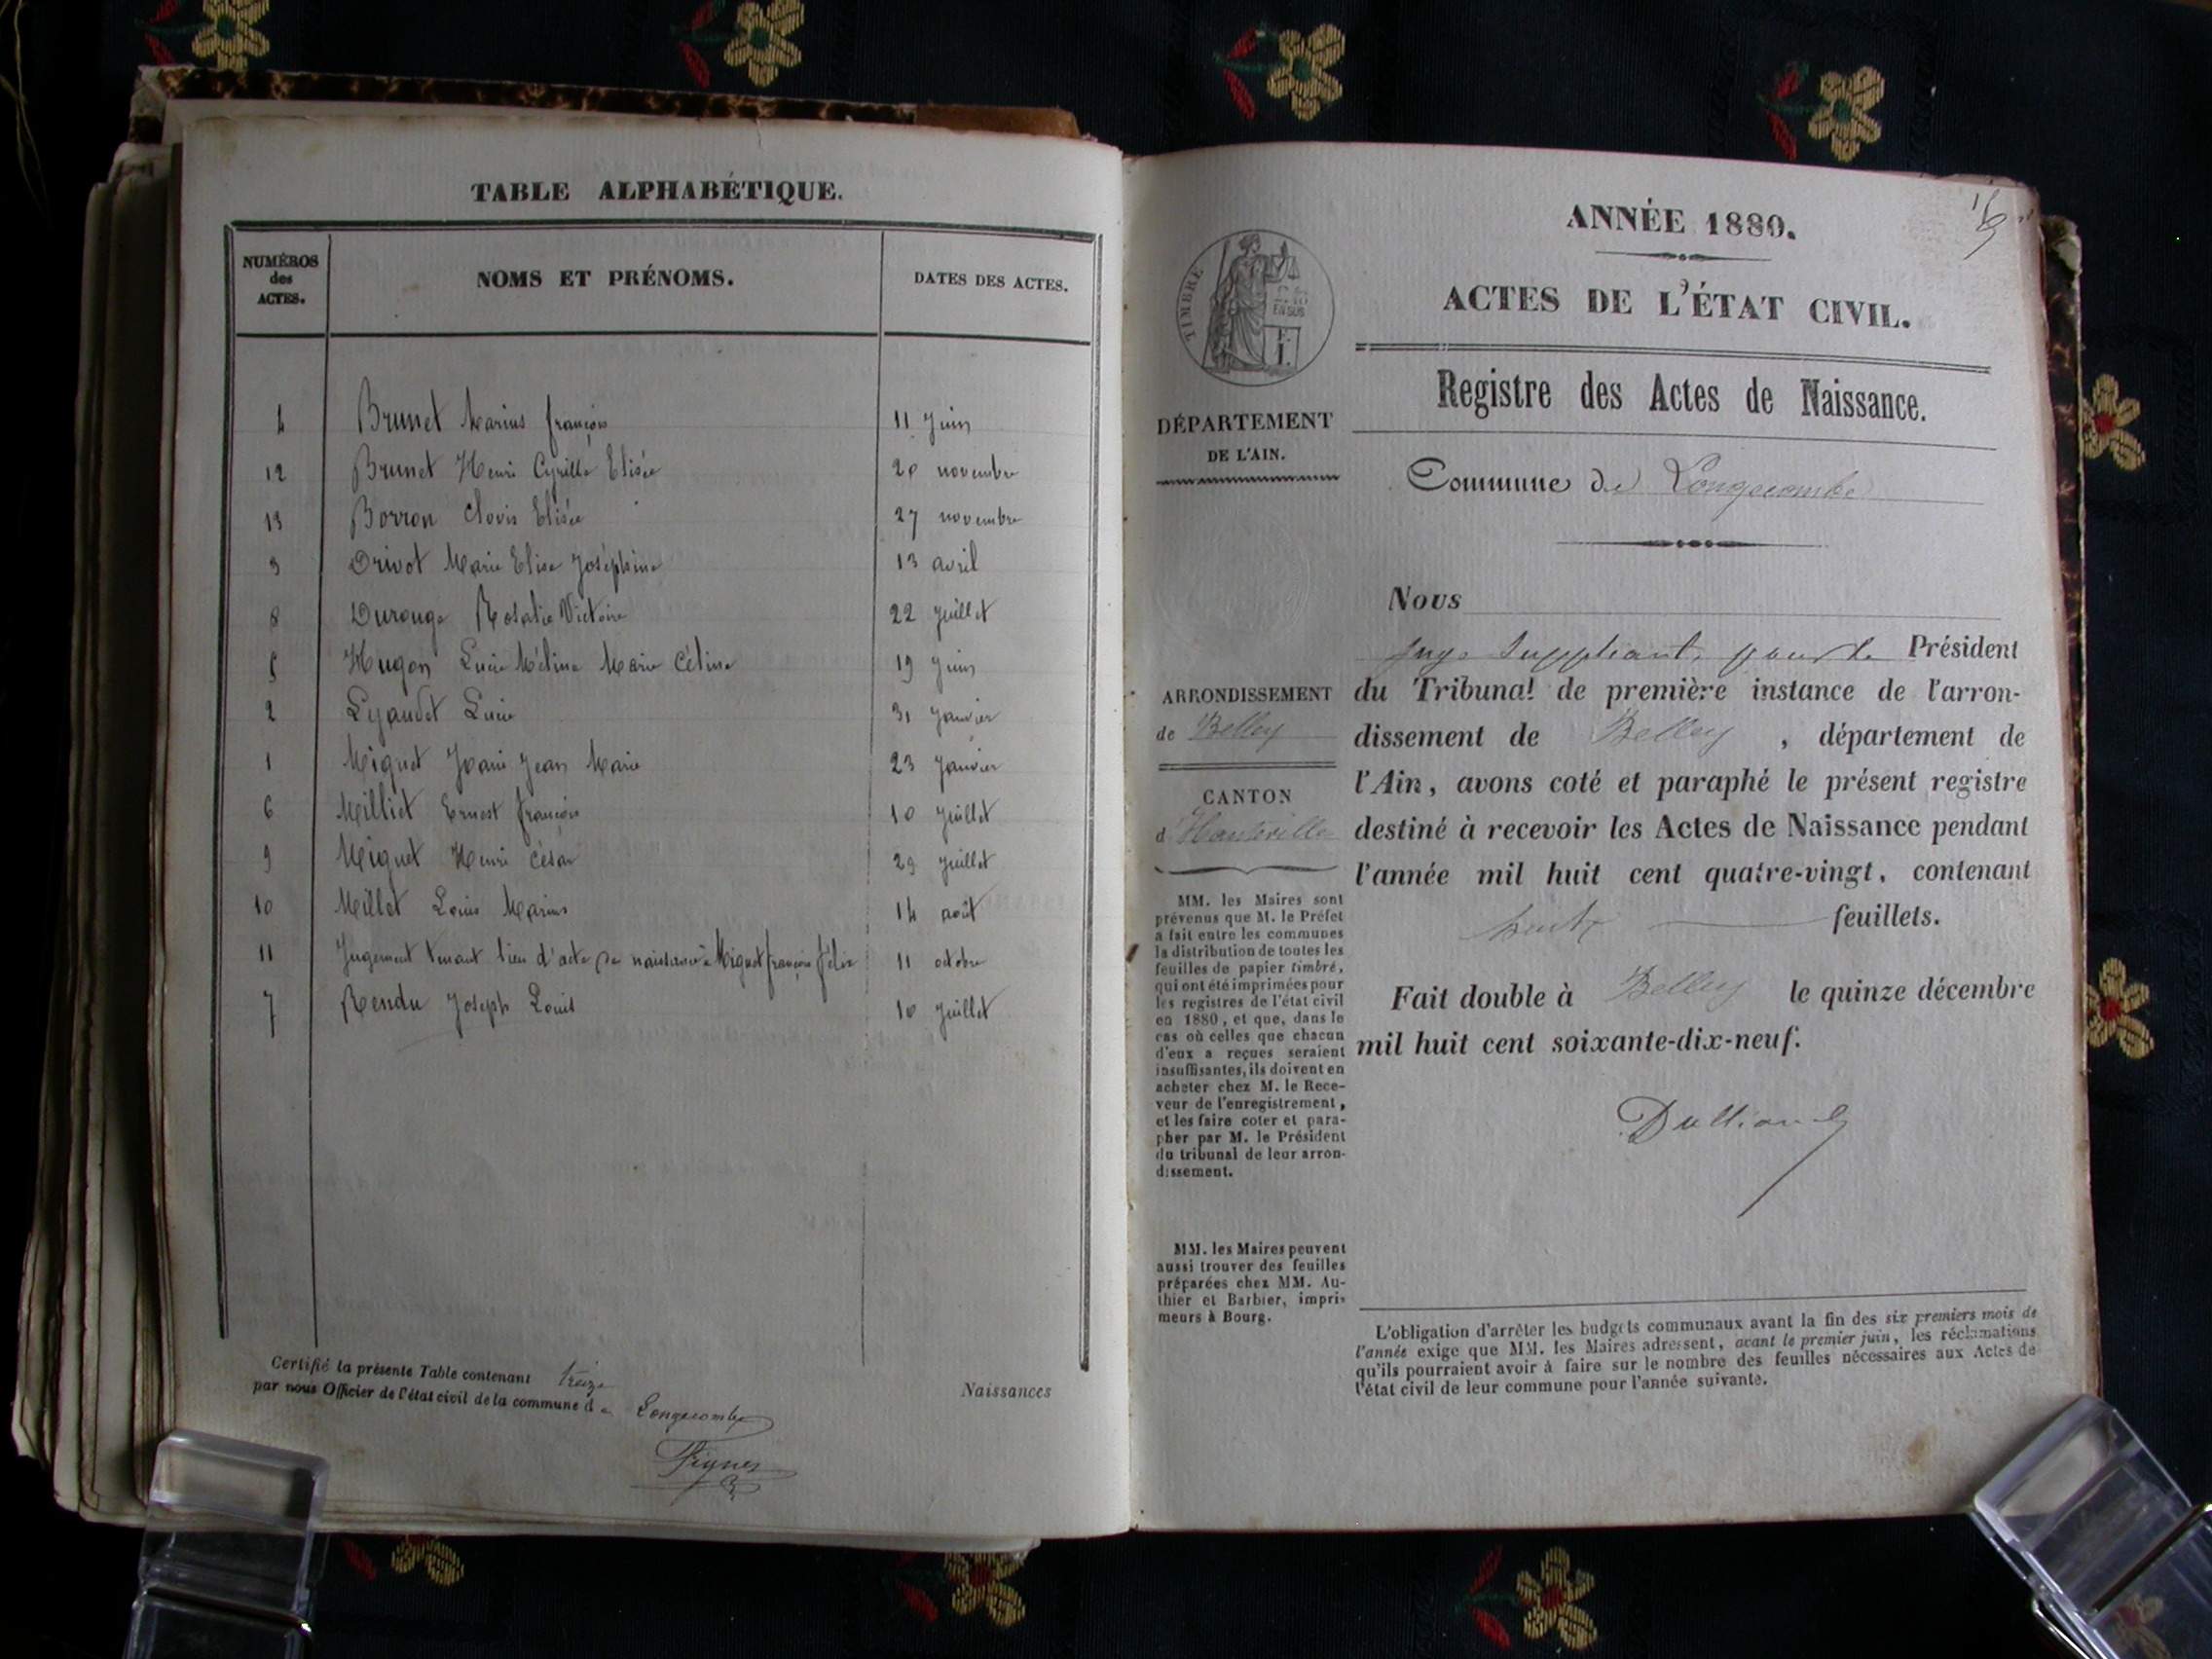 TABLE ALPHABÉTIQUE.
NUMÉROS des ACTES.
NOMS ET PRÉNOMS.
DATES DES ACTES.
4 Brunet Marius françois 11 Juin
12 Brunet Henri Cyrille Elisée 20 novembre
13 Borron Clovis Elisée 27 novembre
3 Drivot Marie Elise Joséphine 13 avril
8 Durouge Rosalie Victoire 22 Juillet
5 Hugon Lucie Méline Marie Céline 19 Juin
2 Lyaudet Lucie 31 Janvier
1 Miguet Joani Jean Marie 23 Janvier
6 Milliet Ernest françois 10 Juillet
9 Miguet Henri César 29 Juillet
10 Millet Louis Marius 14 août
11 Jugement tenant lieu d'acte de naissance à Miguet françois félix 11 octobre
7 Rendu Joseph Louis 10 Juillet
Certifié la présente Table contenant treize
par nous Officier de l'état civil de la commune de Longecombe
Naissances
ANNÉE 1880.
ACTES DE L'ÉTAT CIVIL.
Registre des Actes de Naissance.
Commune de Longecombe
TIMBRE
EN SUS
DÉPARTEMENT
DE L'AIN.
ARRONDISSEMENT
de Belley
CANTON
d'Hauteville
MM. les Maires sont
prévenus que M. le Préfet
a fait entre les communes
la distribution de toutes les
feuilles de papier timbré,
qui ont été imprimées pour
les registres de l'état civil
en 1880, et que, dans le
cas où celles que chacun
d'eux a reçues seraient
insuffisantes, ils doivent en
acheter chez M. le Rece-
veur de l'enregistrement,
et les faire coter et para-
pher par M. le Président
du tribunal de leur arron-
dissement.
MM. les Maires peuvent
aussi trouver des feuilles
préparées chez MM. Au-
thier et Barbier, impri-
meurs à Bourg.
Nous
Juge Suppléant, pour le Président
du Tribunal de première instance de l'arron-
dissement de Belley, département de
l'Ain, avons coté et paraphé le présent registre
destiné à recevoir les Actes de Naissance pendant
l'année mil huit cent quatre-vingt, contenant
feuillets.
Fait double à Belley le quinze décembre
mil huit cent soixante-dix-neuf.
L'obligation d'arrêter les budgets communaux avant la fin des six premiers mois de
l'année exige que MM. les Maires adressent, avant le premier juin, les réclamations
qu'ils pourraient avoir à faire sur le nombre des feuilles nécessaires aux Actes de
l'état civil de leur commune pour l'année suivante.